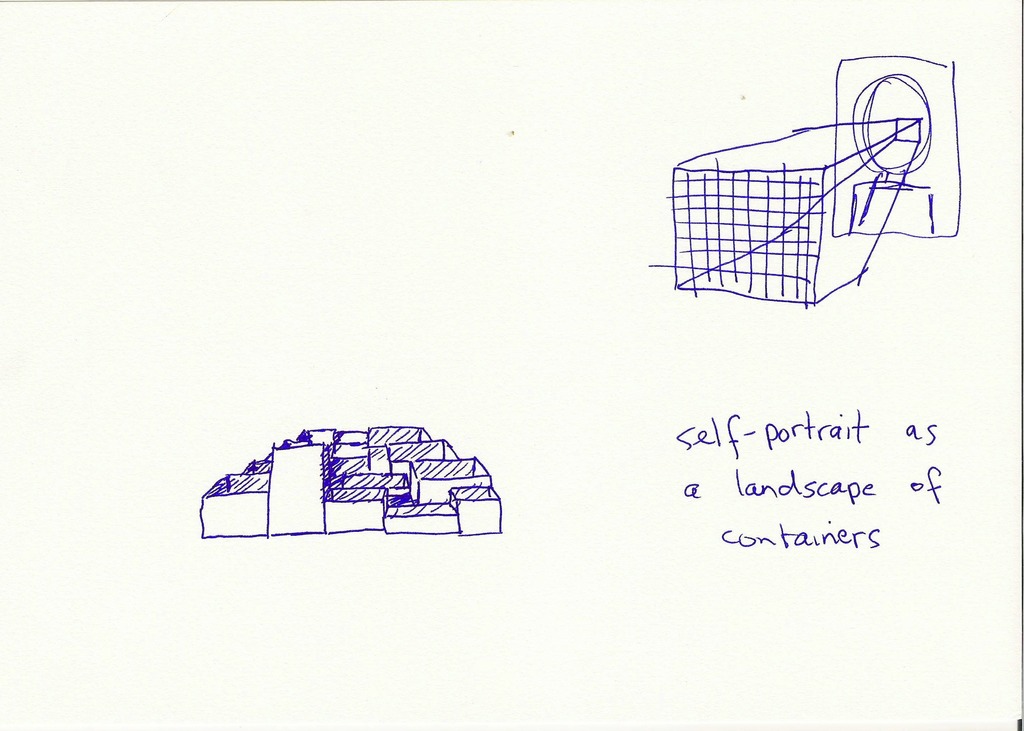 self-portrait as
a landscape of
containers